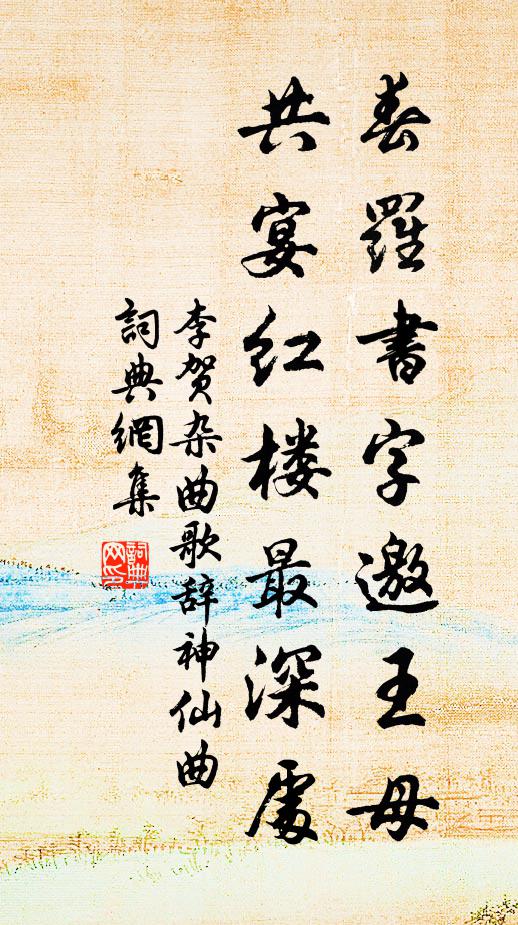 春羅書字邀王母
共宴红楼最深處
李贺杂曲歌辞神仙曲
詞典網集
詞典网印